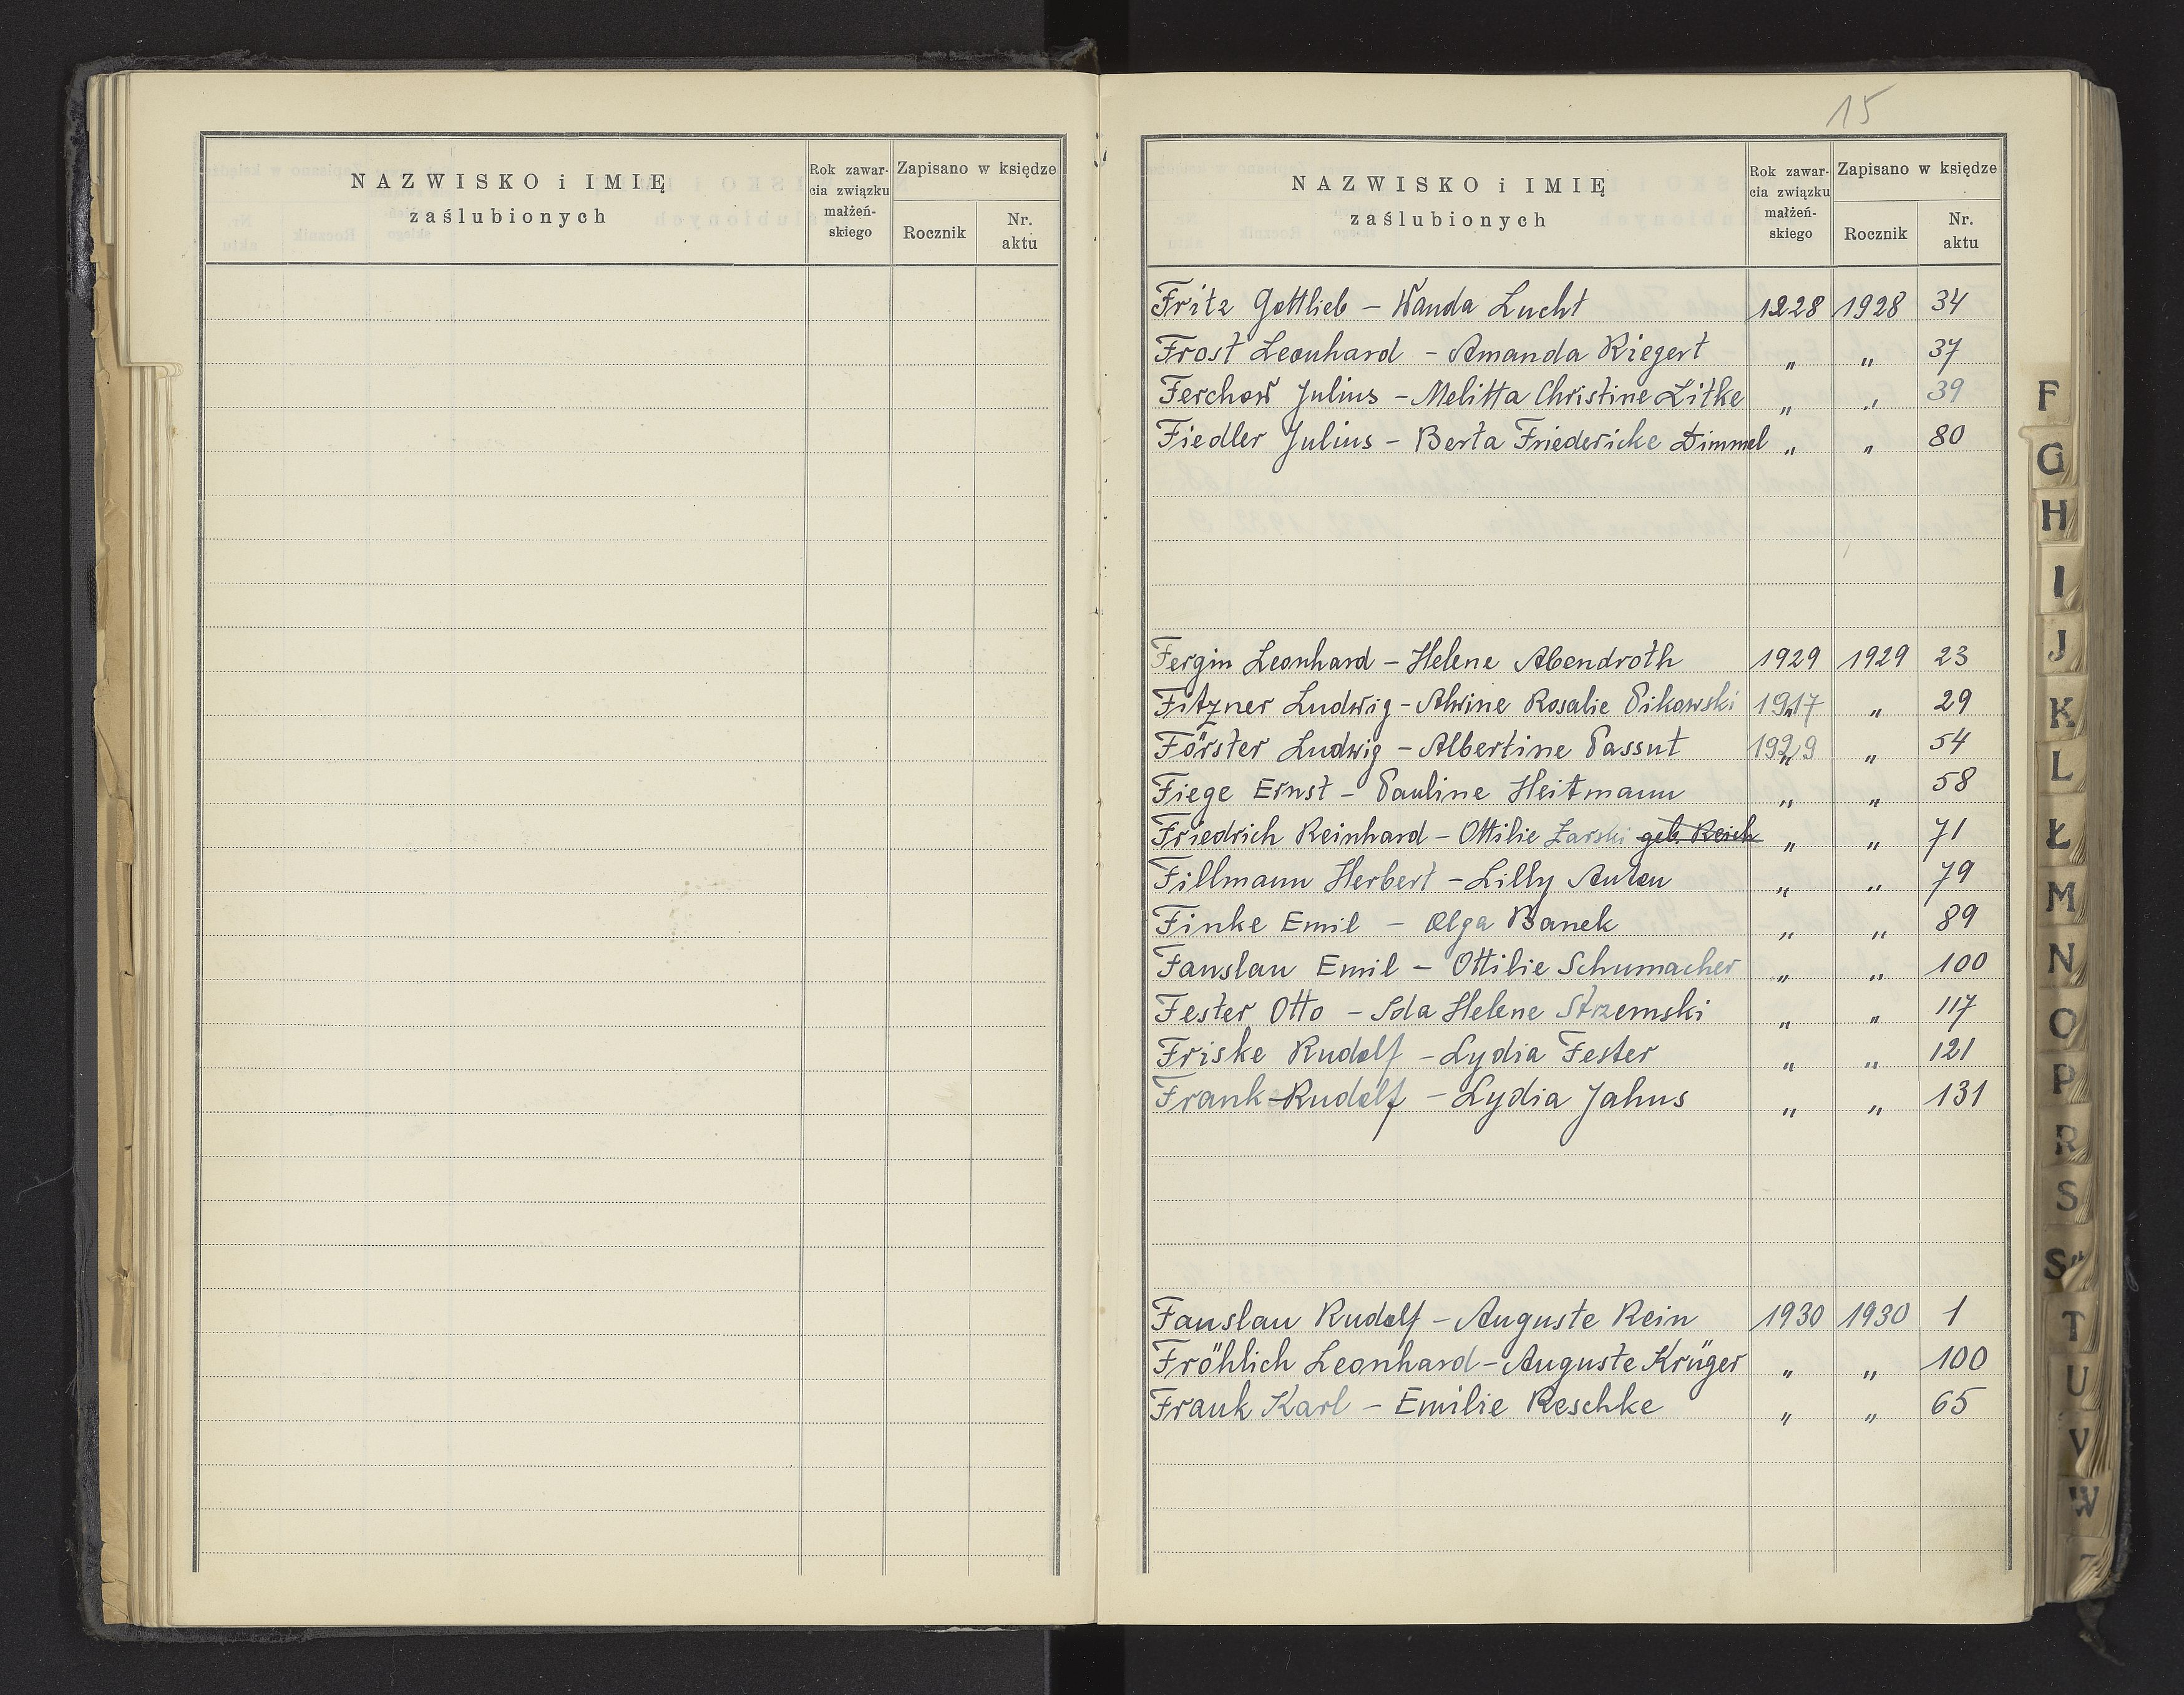 NAZWISKO i IMIĘ
zaślubionych
Rok zawar-
cia związku
małżeń-
skiego
Zapisano w księdze
Rocznik
Nr.
aktu
15
NAZWISKO i IMIĘ
zaślubionych
Rok zawar-
cia związku
małżeń-
skiego
Zapisano w księdze
Rocznik
Nr.
aktu
Fritz Gottlieb – Wanda Lucht 1928 1928 34
Frost Leonhard – Amanda Riegert " " 37
Ferchow Julius – Melitta Christine Litke " " 39
Fiedler Julius – Berta Friedericke Dimmel " " 80
Fergin Leonhard – Helene Abendroth 1929 1929 23
Fitzner Ludwig – Alwine Rosalie Pikowski 1917 " 29
Förster Ludwig – Albertine Passut 1929 " 54
Fiege Ernst – Pauline Heitmann " " 58
Friedrich Reinhard – Ottilie Żarski geb. Reich " " 71
Fillmann Herbert – Lilly Anton " " 79
Finke Emil – Olga Banek " " 89
Fanslau Emil – Ottilie Schumacher " " 100
Fester Otto – Ida Helene Strzemski " " 117
Friske Rudolf – Lydia Fester " " 121
Frank Rudolf – Lydia Jahns " " 131
Fanslau Rudolf – Auguste Rein 1930 1930 1
Fröhlich Leonhard – Auguste Krüger " " 100
Frank Karl – Emilie Reschke " " 65
F
G
H
I
J
K
L
Ł
M
N
O
P
R
S
Ś
T
U
V
W
Z